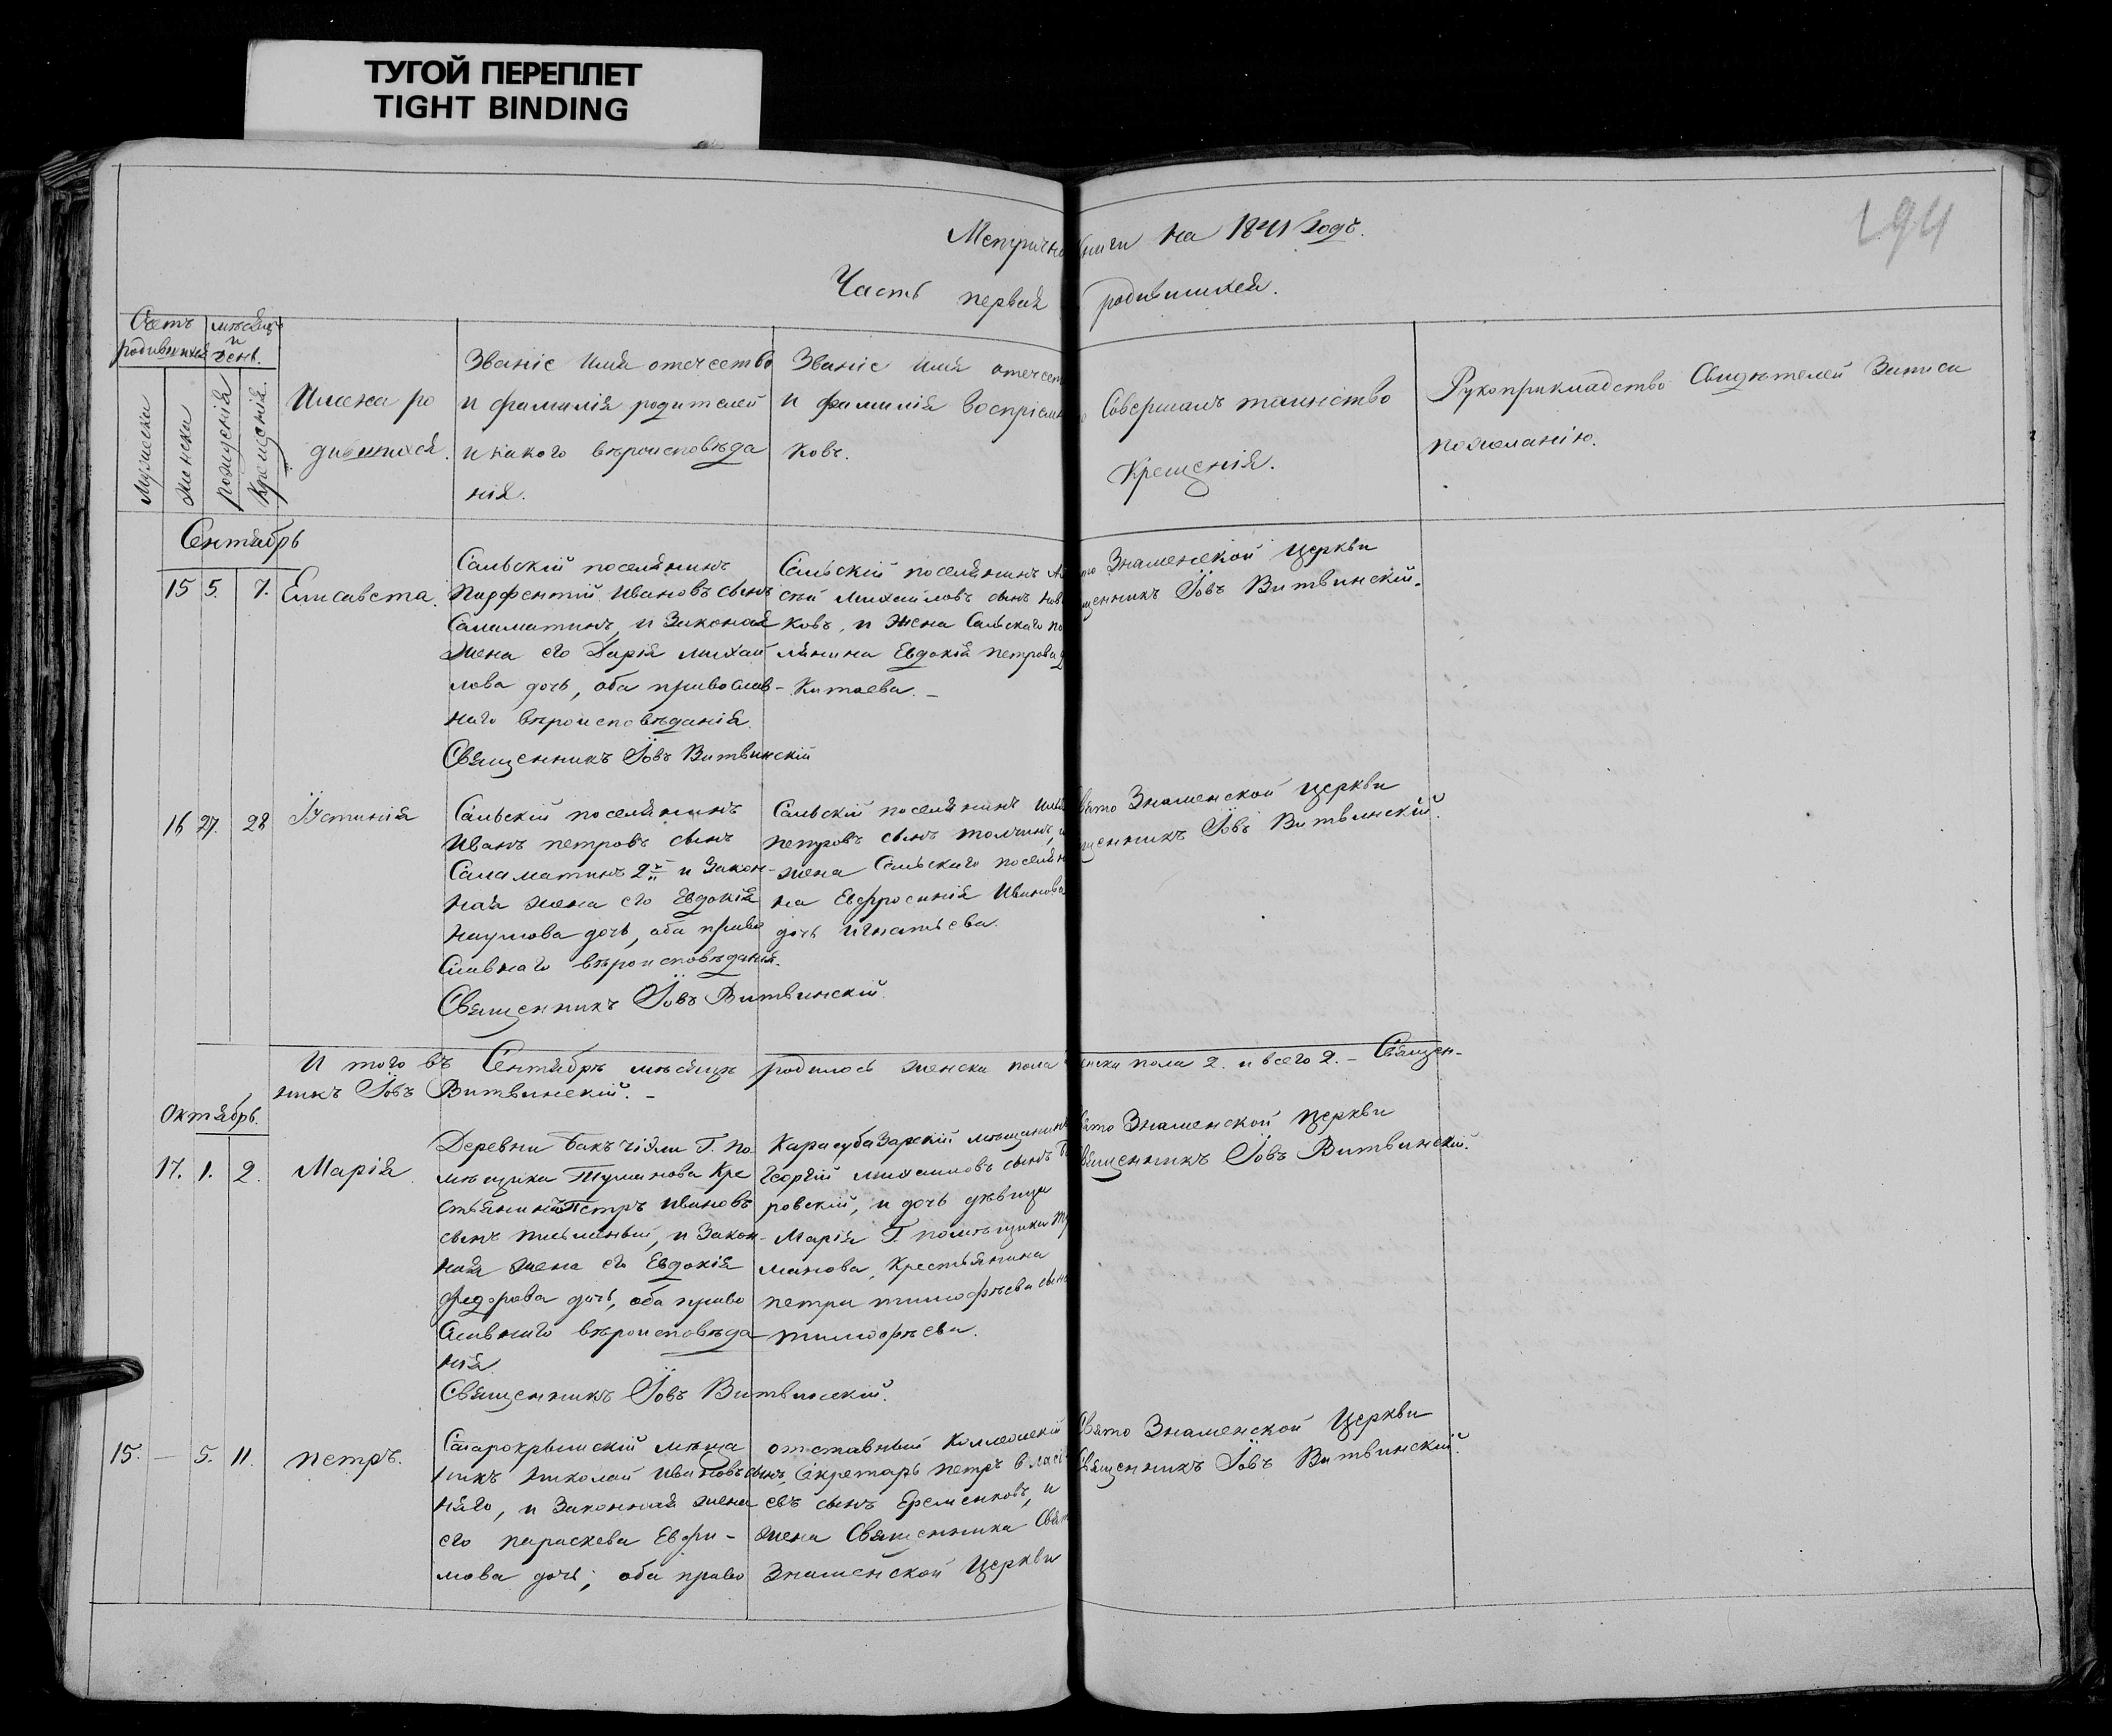 ТУГОЙ ПЕРЕПЛЕТ
TIGHT BINDING
194
Метрично книги на 1841 Годъ.
Часть первая родившихся.
Счетъ родившихся
мѣсяцъ и день.
Мужески
Женски
рожденія
Крещенія.
Имена ро
дившихся.
Званіе Имя отечество
и фамилія родителей
и какого вѣроисповѣда
нія.
Званіе Имя отечест
и фамилія воспріем
ковъ.
Совершалъ таинство
Крещенія.
Рукоприкладство Свидѣтелей Записи
по желанію.
Сентябрь
15 5. 7. Елисавета.
Сальскій поселянинъ
Парфентій Ивановъ сынъ
Саламатинъ, и Законая
Жена его Дарія михай
лова дочь, оба православ-
наго вѣроисповѣданія.
Священникъ Іовъ Витвинскій
Сальскій поселянинъ
михайловъ сынъ
ковъ, и Жена Сальскаго по
лянина Евдокія петрова д
Китаева. –
то Знаменской церкви
щенникъ Іовъ Витвинскій.
16 27. 28 Іустинія
Сальскій поселянинъ
Иванъ петровъ сынъ
Саламатинъ 2й и Закон-
ная жена его Евдокія
наумова дочь, оба право
славнаго вѣроисповѣданія.
Священникъ Іовъ Витвинскій.
Сальскій поселянинъ
петровъ сынъ толчинъ, и
жена Сальскаго поселян
на Евфросинія Иванова
дочь игнатьева.
вято Знаменской церкви
щенникъ Іовъ Витвинскій.
И того въ Сентябрѣ мѣсяцѣ родилось женска пола женска пола 2. и всего 2. – Священ-
никъ Іовъ Витвинскій. –
Октябрь.
17. 1. 2. Марія
Деревни Г. По
мѣщика Туманова Кре
стьянинъ Петръ Ивановъ
сынъ письменый, и Закон-
ная жена его Евдокія
Федорова дочь, оба право
славнаго вѣроисповѣда
нія
Священникъ Іовъ Витвинскій.
Карасубазарскій мѣщанинъ
Георгій михаиловъ сынъ
ровскій, и дочь дѣвица
Марія Г. помѣщика Ту
манова, Крестьянина
петра тимофѣева сына
тимофѣева.
вято Знаменской Церкви
священникъ Іовъ Витвинскій.
15. – 5. 11. петръ.
Старокрымскій мѣща
никъ николай Ивановъ сынъ,
няго, и Законная жена
его параскева Евфи-
мова дочь; оба право
отставный Коллежскій
Секретарь петръ власі
евъ сынъ Еременковъ, и
жена Священника Свят
Знаменской Церкви
Свято Знаменской Церкви
Священникъ Іовъ Витвинскій.